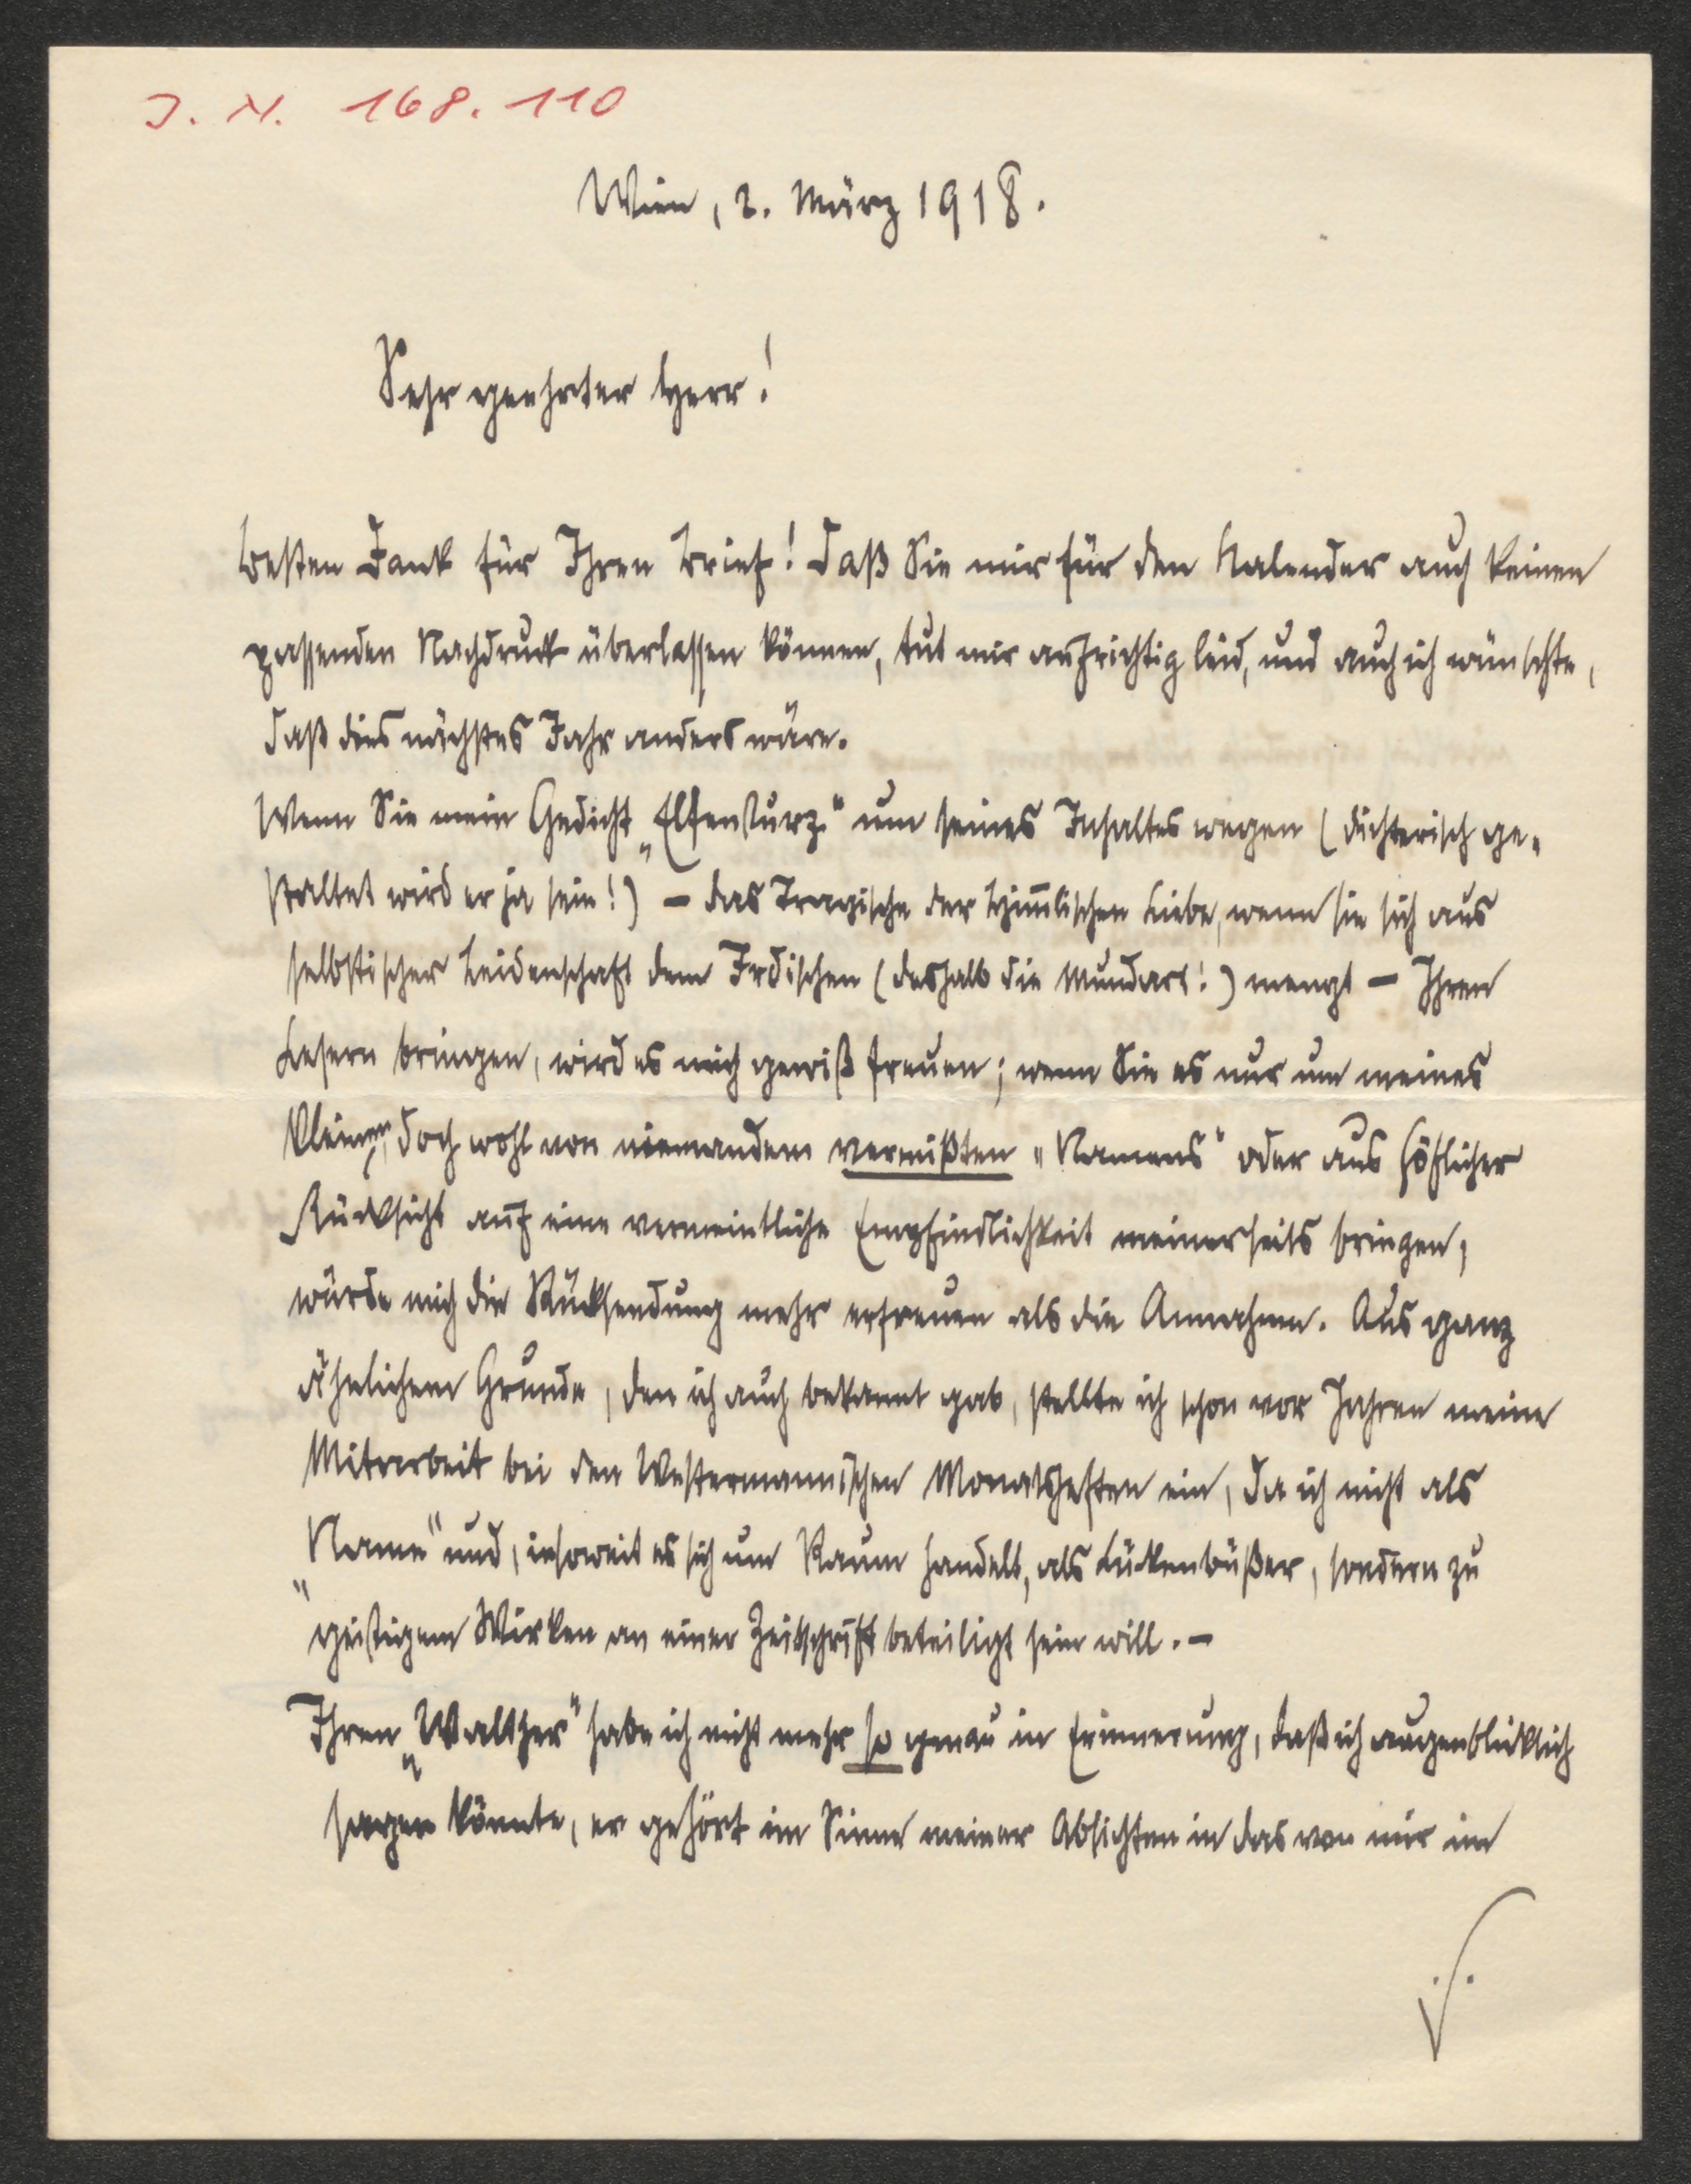 J. N. 168.110
Wien, 2. März 1918.
Sehr geehrter Herr!
besten Dank für Ihren Brief! Daß Sie mir für den Kalender auch keinen
passenden Nachdruck überlassen können, tut mir aufrichtig leid, und auch ich wünschte,
daß dies nächstes Jahr anders wäre.
Wenn Sie mein Gedicht „Elfensturz“ um seines Inhaltes wegen (dichterisch ge-
staltet wird er ja sein!) – das Tragische der himmlischen Liebe, wenn sie sich aus
selbstischer Leidenschaft dem Irdischen (deshalb die Mundart!) mengt – Ihren
Lesern bringen, wird es mich gewiß freuen; wenn Sie es nur um meines
kleinen, doch wohl von niemandem vermißten „Namens“ oder aus höflicher
Rücksicht auf eine vermeintliche Empfindlichkeit meinerseits bringen,
würde mich die Rücksendung mehr erfreuen als die Annahme. Aus ganz
ähnlichem Grunde, den ich auch bekannt gab, stellte ich schon vor Jahren meine
Mitarbeit bei den Westermannschen Monatsheften ein, da ich nicht als
„Name“ und, insoweit es sich um Raum handelt, als Lückenbüßer, sondern zu
geistigem Wirken an einer Zeitschrift beteiligt sein will. –
Ihren „Walther“ habe ich nicht mehr so genau in Erinnerung, daß ich augenblicklich
sagen könnte, er gehört im Sinne meiner Absichten in das von mir im